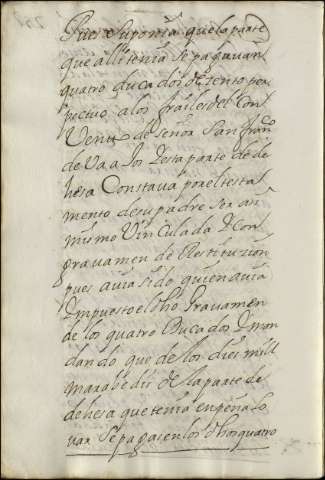 Pues Suponia que la parte
que alli tenia Se pagavan
quatro ducados de zento per
petuo a los frailes del Con
Vento de señor San fran.co
de Va a los Y esta parte de de
hesa Constava por el testa
mento de su padre Ser an
mismo Vinculada Y Con
gravamen de Restituzion
pues avia sido quien avia
Ympuesto el dho Gravamen
de los quatro Ducados Y man
dando que de los diez mill
marabedis de lla parte de
dehesa que tenia en peñalo
var Se pagasen los dhos quatro